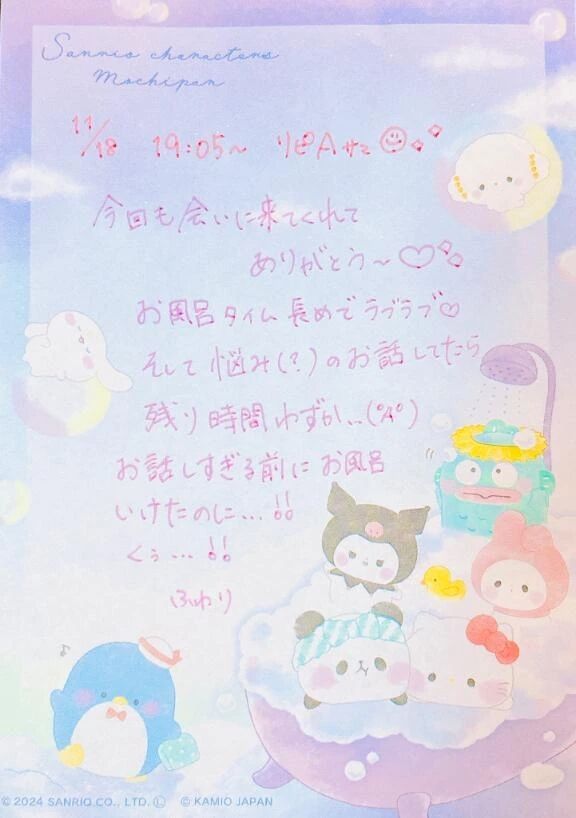 Sanrio characters
Mochipan
11/18 19:05〜 リピAサマ
今回も会いに来てくれて
ありがとう〜♡
お風呂タイム長めでラブラブ♡
そして悩み(?)のお話してたら
残り時間わずか…(°Д°)
お話しすぎる前にお風呂
いけたのに…!!
くぅ…!!
ふわり
© 2024 SANRIO CO., LTD. Ⓛ © KAMIO JAPAN